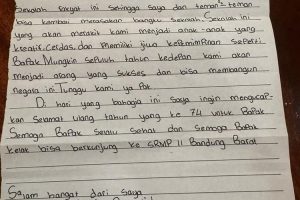 Sekolah rakyat ini sehingga saya dan teman-teman
bisa kembali merasakan bangku sekolah. Sekolah ini
yang akan merakit kami menjadi anak-anak yang
kreatif, Cerdas dan Memiliki jiwa kepemimpinan seperti
Bapak. Mungkin sepuluh tahun kedepan kami akan
menjadi orang yang sukses dan bisa membangun
negara ini Tunggu kami ya Pak
Di hari yang bahagia ini saya ingin mengucap-
kan Selamat ulang tahun yang ke 74 untuk Bapak
Semoga Bapak Selalu Sehat dan Semoga Bapak
kelak bisa berkunjung ke SRMP 11 Bandung Barat
Salam hangat dari Saya